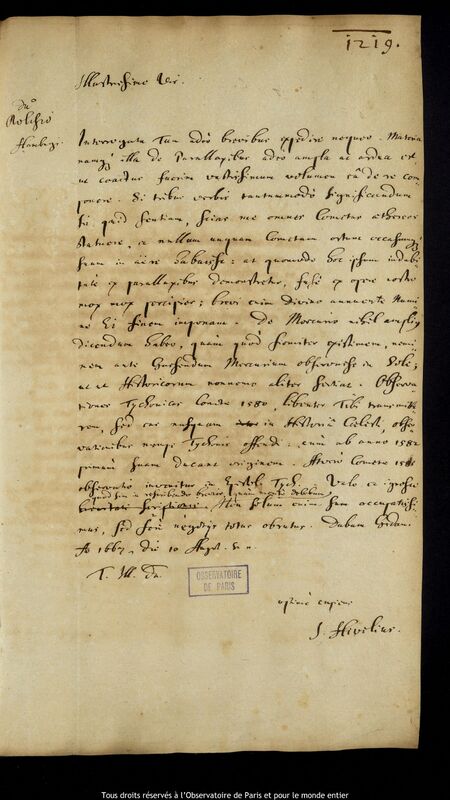 1219.
Illustrissime Vir.
Dno
Hamburg.
Interrogata Tua adeò brevibus expedire nequeo. Materia
namq; illa de Parallaxibus adeo ampla ac ardua est
ut coactus fuerim vastissimum volumen eâ de re com
ponere. Si tribus verbis tantummodò significandum
sit quid sentiam, scias me omnes Cometas aethereos
statuere, ac nullum unquam Cometam ortum
suum in aëre habuisse: at quomodo hoc ipsum indubi
tatè ex parallaxibus demonstretur, fusè ex opere nostro
mox mox percipies; brevi enim divino annuente Numi
ne Ei finem imponam. De Mercurio nihil amplius
dicendum habeo, quàm quòd firmiter existimem, nemi
nem ante Gassendum Mercurium observasse in Sole;
ut ut Historicorum nonnemo aliter sentiat. Observa
tiones Tychonicas Cometae 1580, libenter Tibi transmitte
rem, sed eas nusquam in Historiâ Coelesti, obser
vationibus nempe Tychonis offendi: cum ab anno 1582
primum suam ducant originem. Cometae
observatio invenitur in Epistol. Tych. Vale et
quod sim in respondendo brevior, quam
brevitati Non solum enim sum occupatissi
mus, sed negotijs totus obrutus. Dabam Gedani
Ao 1667, die 10 s. n.
T. Ill. Dn.
OBSERVATOIRE
DE PARIS
J. Hevelius.
Tous droits réservés à l'Observatoire de Paris et pour le monde entier